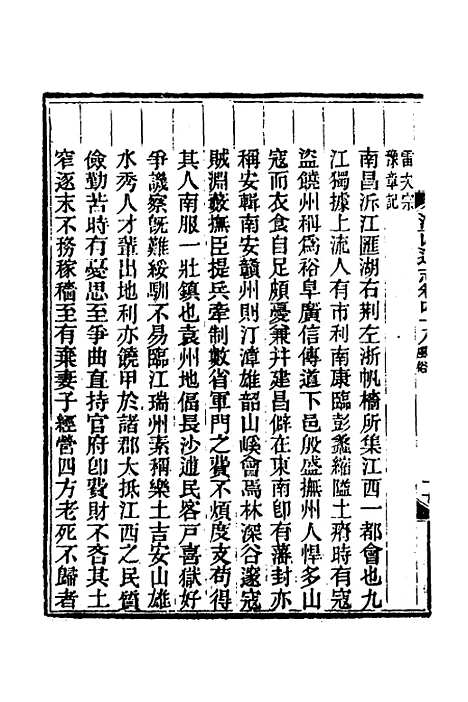 雷次宗
豫章記
南昌泝江匯湖右荆左浙帆檣所集江西一都會也九
江獨據上流人有市利南康臨彭蠡縮隘土瘠時有寇
盜饒州稱爲裕阜廣信傳道下邑殷盛撫州人悍多山
寇而衣食自足頗憂兼并建昌僻在東南卽有藩封亦
稱安輯南安贛州則汀漳雄韶山嵠會焉林深谷邃寇
賊淵藪撫臣提兵牽制數省軍門之費不煩度支苟得
其人南服一壯鎮也袁州地偪長沙逋民客戶喜獄好
爭譏察旣難綏馴不易臨江瑞州素稱樂土吉安山雄
水秀人才輩出地利亦饒甲於諸郡大抵江西之民質
儉勤苦時有憂思至爭曲直持官府卽費財不吝其土
窄逐末不務稼穡至有棄妻子經營四方老死不歸者